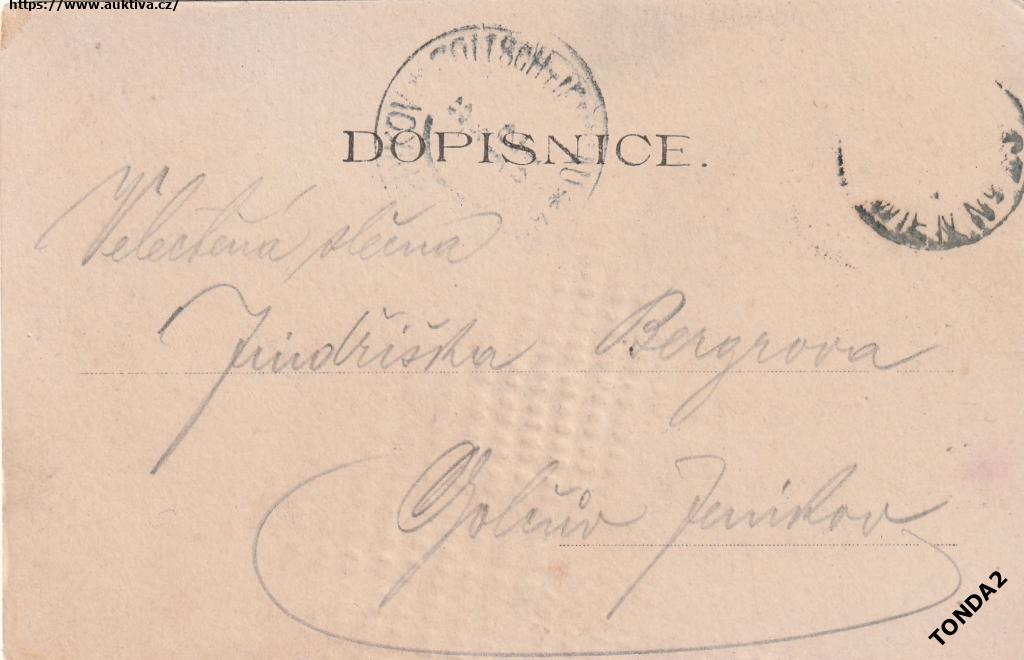 https://www.auktiva.cz/
DOPISNICE.
WIEN
Velectěná slečna
Jindřiška Bergrova
Golčův Jenikov
TONDA2